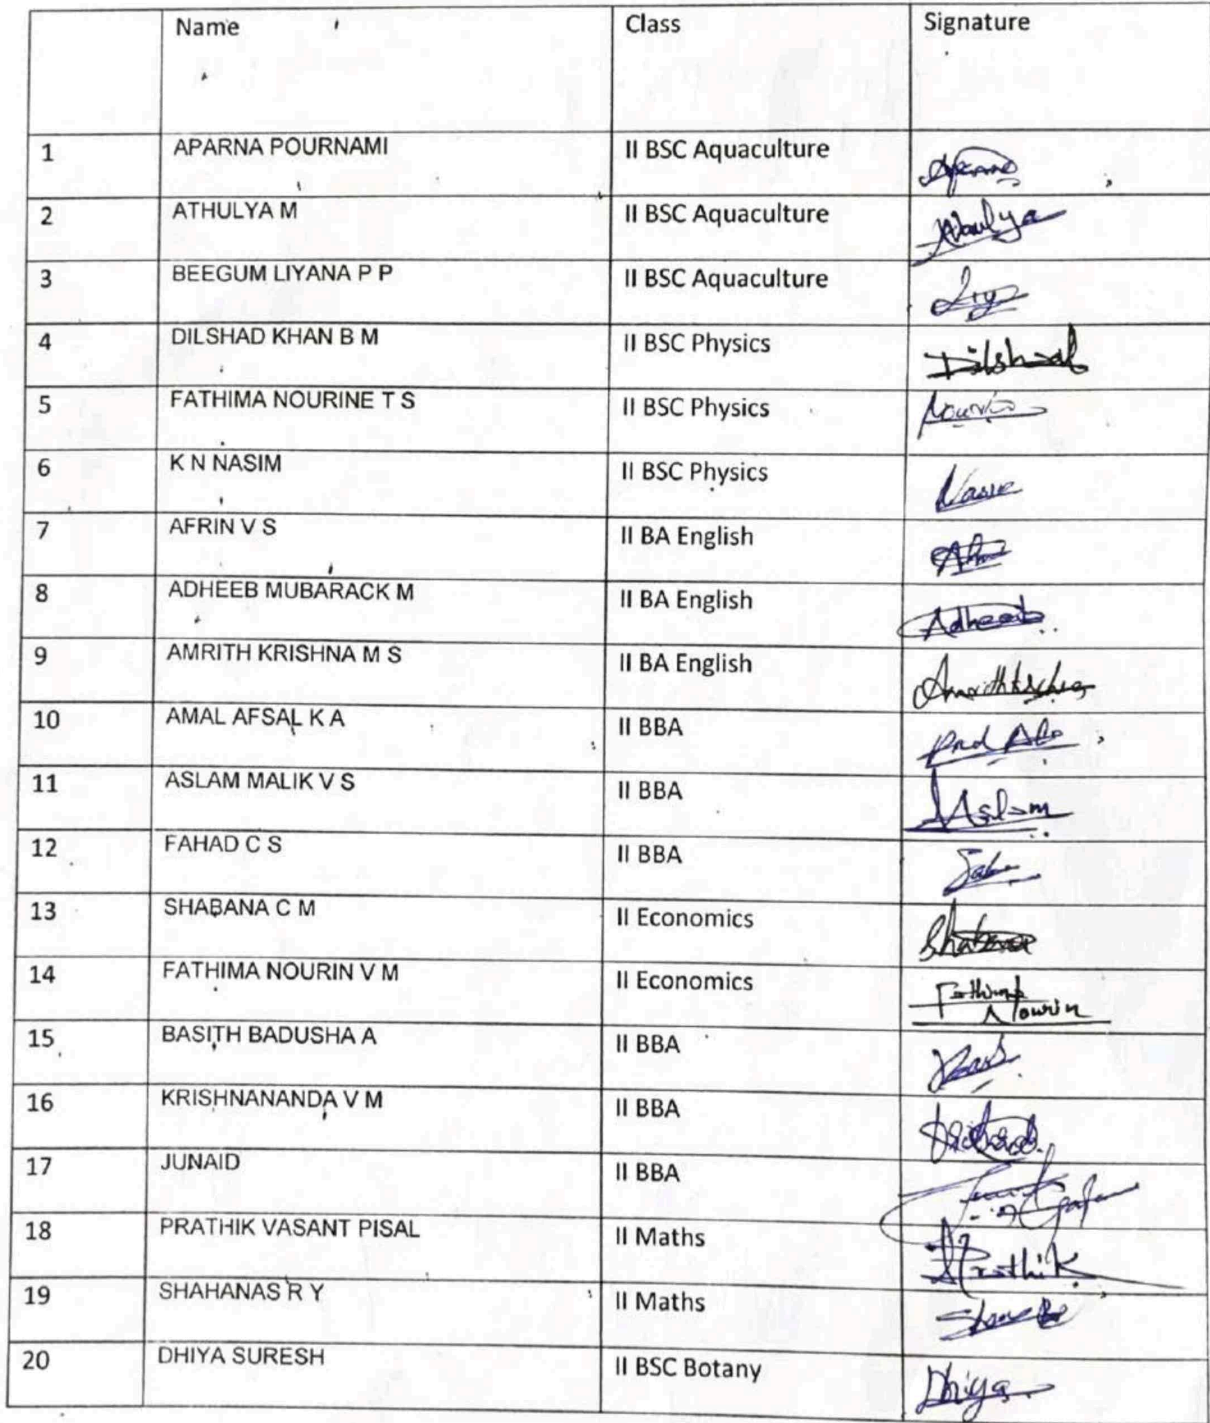 Name Class Signature
1 APARNA POURNAMI II BSC Aquaculture Aparna
2 ATHULYA M II BSC Aquaculture Athulya
3 BEEGUM LIYANA P P II BSC Aquaculture
4 DILSHAD KHAN B M II BSC Physics Dilshad
5 FATHIMA NOURINE T S II BSC Physics Nourin
6 K N NASIM II BSC Physics
7 AFRIN V S II BA English
8 ADHEEB MUBARACK M II BA English Adheeb
9 AMRITH KRISHNA M S II BA English
10 AMAL AFSAL K A II BBA
11 ASLAM MALIK V S II BBA Aslam
12 FAHAD C S II BBA
13 SHABANA C M II Economics Shabana
14 FATHIMA NOURIN V M II Economics Fathima Nourin
15 BASITH BADUSHA A II BBA
16 KRISHNANANDA V M II BBA
17 JUNAID II BBA
18 PRATHIK VASANT PISAL II Maths Prathik
19 SHAHANAS R Y II Maths
20 DHIYA SURESH II BSC Botany Dhiya